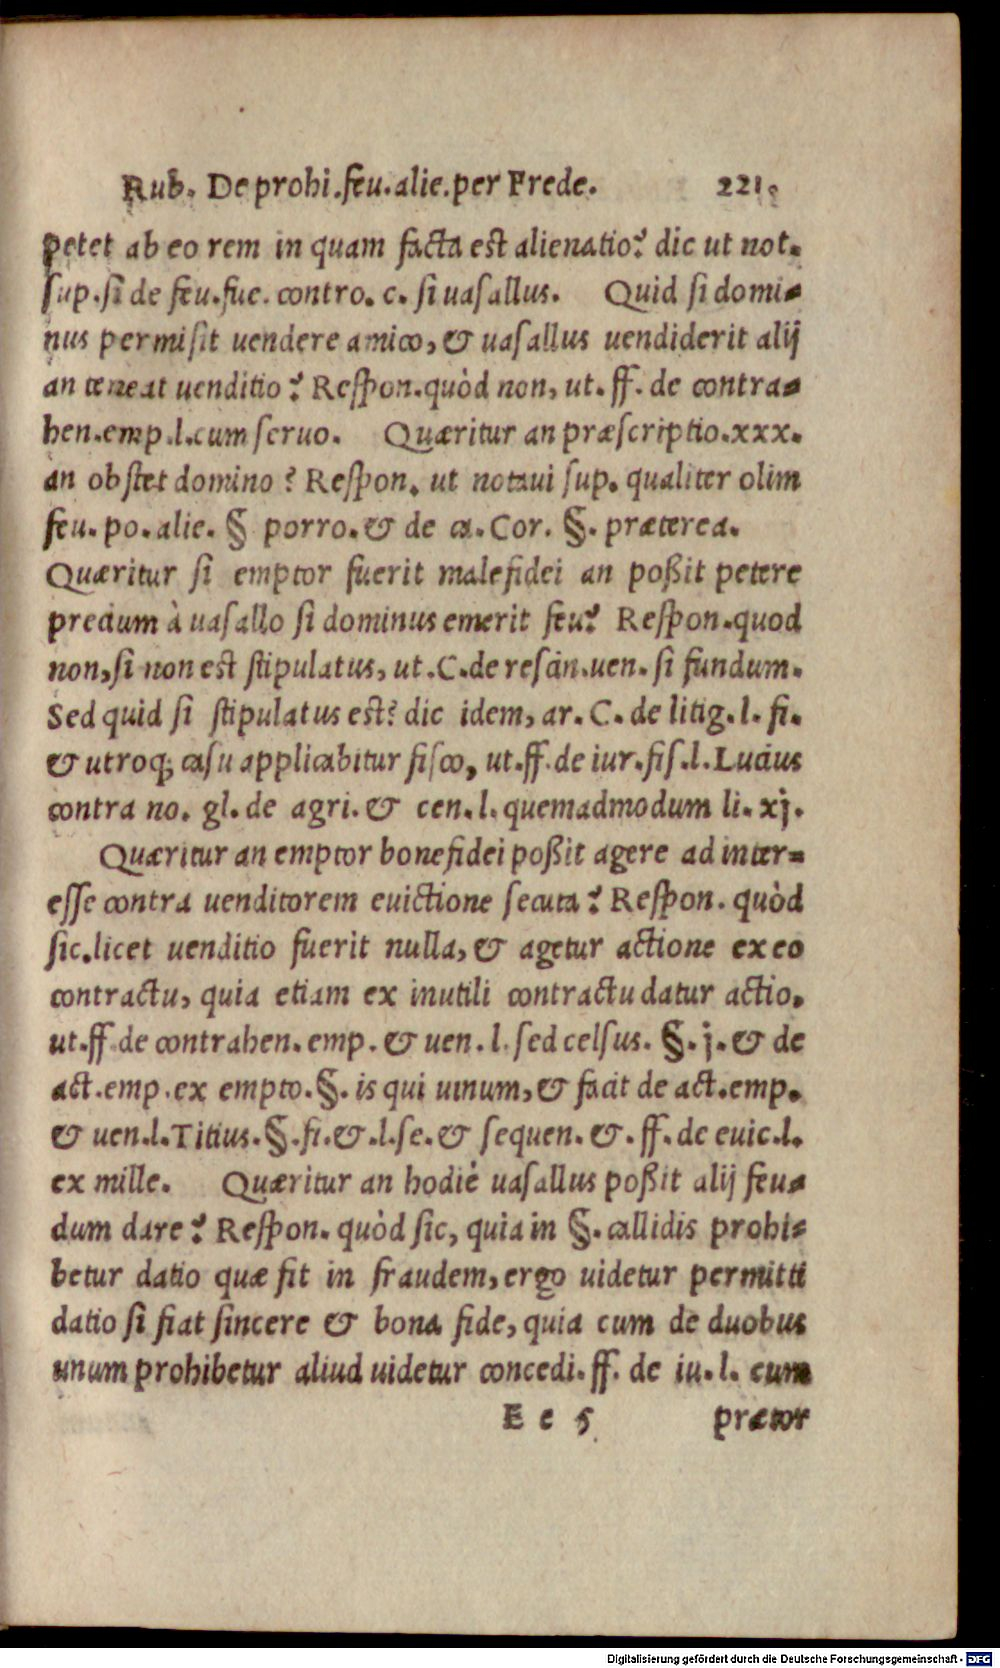 Rub. De prohi.feu.alie.per Frede. 221.
petet ab eo rem in quam facta est alienatio? dic ut not.
sup.si de feu.fue. contro. c. si uasallus. Quid si domi-
nus permisit uendere amico, & uasallus uendiderit alij
an teneat uenditio? Respon.quòd non, ut. ff. de contra-
hen.emp.l.cum seruo. Quæritur an præscriptio.xxx.
an obstet domino? Respon. ut notaui sup. qualiter olim
feu. po. alie. § porro. & de ca. Cor. §. præterea.
Quæritur si emptor fuerit malefidei an poßit petere
precium à uasallo si dominus emerit feu? Respon.quod
non, si non est stipulatus, ut.C.de rescin.uen. si fundum.
Sed quid si stipulatus est? dic idem, ar. C. de litig. l. fi.
& utroq; casu applicabitur fisco, ut.ff.de iur.fis.l.Lucius
contra no. gl. de agri. & cen. l. quemadmodum li. xj.
Quæritur an emptor bonefidei poßit agere ad inter-
esse contra uenditorem euictione secuta? Respon. quòd
sic.licet uenditio fuerit nulla, & agetur actione ex eo
contractu, quia etiam ex inutili contractu datur actio.
ut.ff.de contrahen. emp. & uen. l. sed celsus. §. j. & de
act.emp.ex empto.§. is qui uinum, & facit de act.emp.
& uen.l.Titius.§.fi.&.l.se.& sequen. &. ff. de euic.l.
ex mille. Quæritur an hodiè uasallus poßit alij feu-
dum dare? Respon. quòd sic, quia in §. callidis prohi-
betur datio quæ fit in fraudem, ergo uidetur permitti
datio si fiat sincere & bona fide, quia cum de duobus
unum prohibetur aliud uidetur concedi. ff. de iu. l. cum
E e 5 prætor
Digitalisierung gefördert durch die Deutsche Forschungsgemeinschaft - DFG